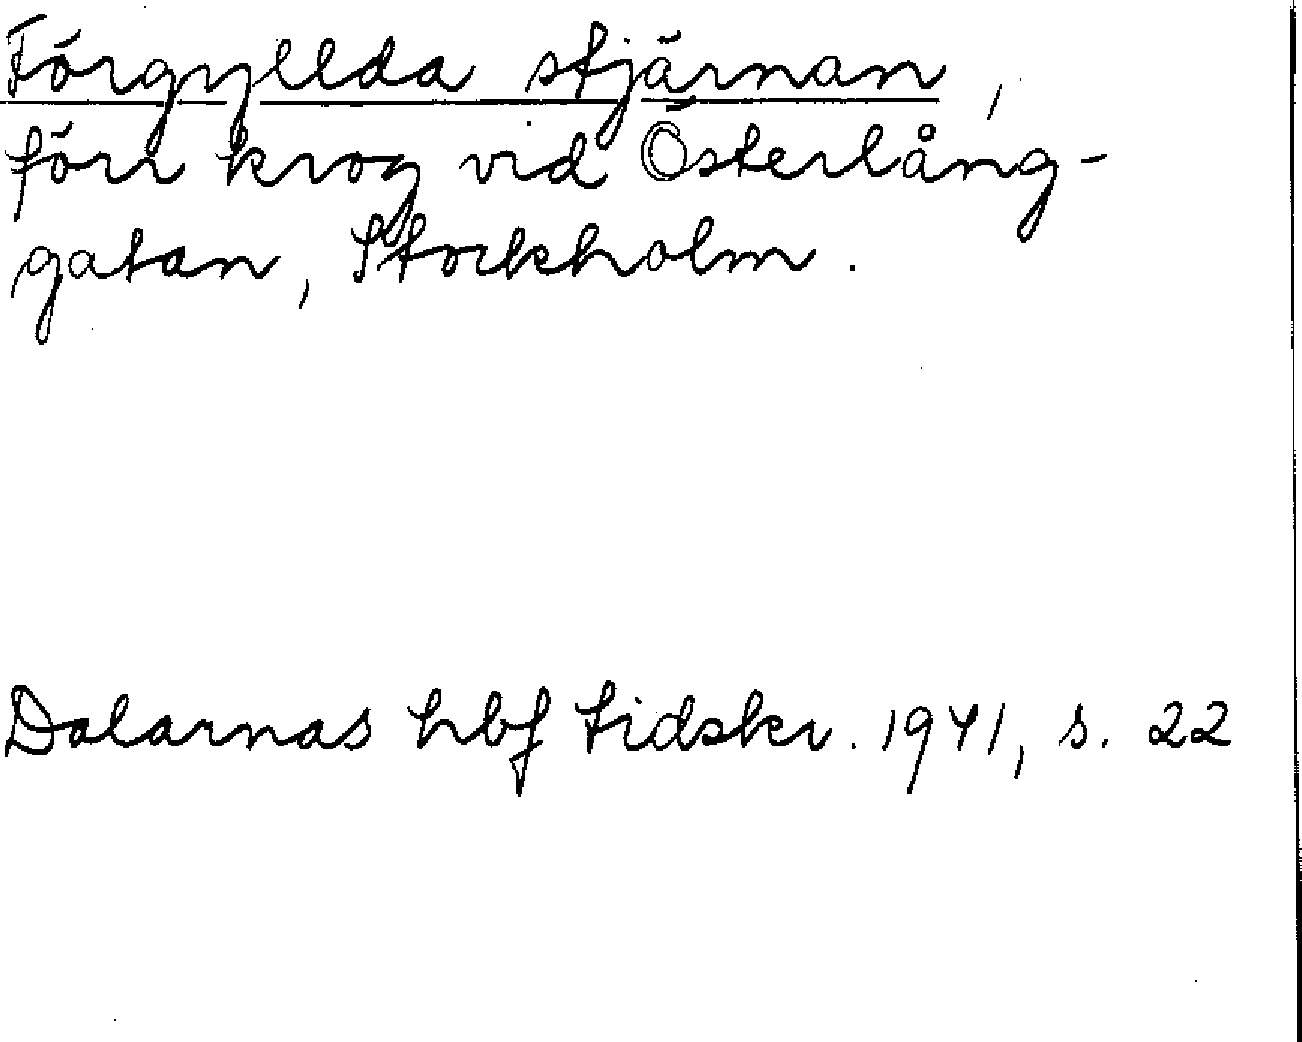 Förgyllda stjärnan,
förr krog vid Österlång-
gatan, Stockholm.
Dalarnas hbf tidskr. 1941, s. 22